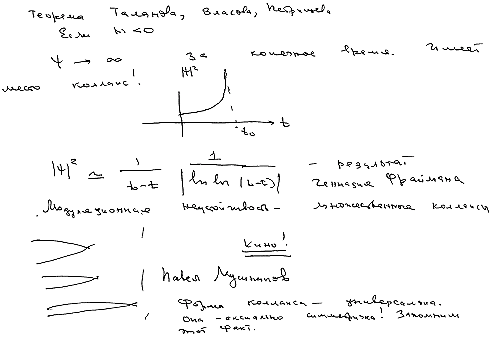 Теорема Таланова, Власова, Петрищева
Если H < 0
ψ → ∞ за конечное время. Имеет
место коллапс!
|ψ|²
t₀ t
|ψ|² ≃ 1/(t₀-t) 1/|ln ln (t₀-t)| - результат
Геннадия Фраймана
Модуляционная неустойчивость - множественные коллапсы
Кино!
Павел Лушников
Форма коллапса - универсальна.
Она - аксиально симметрична! Запомним
этот факт.